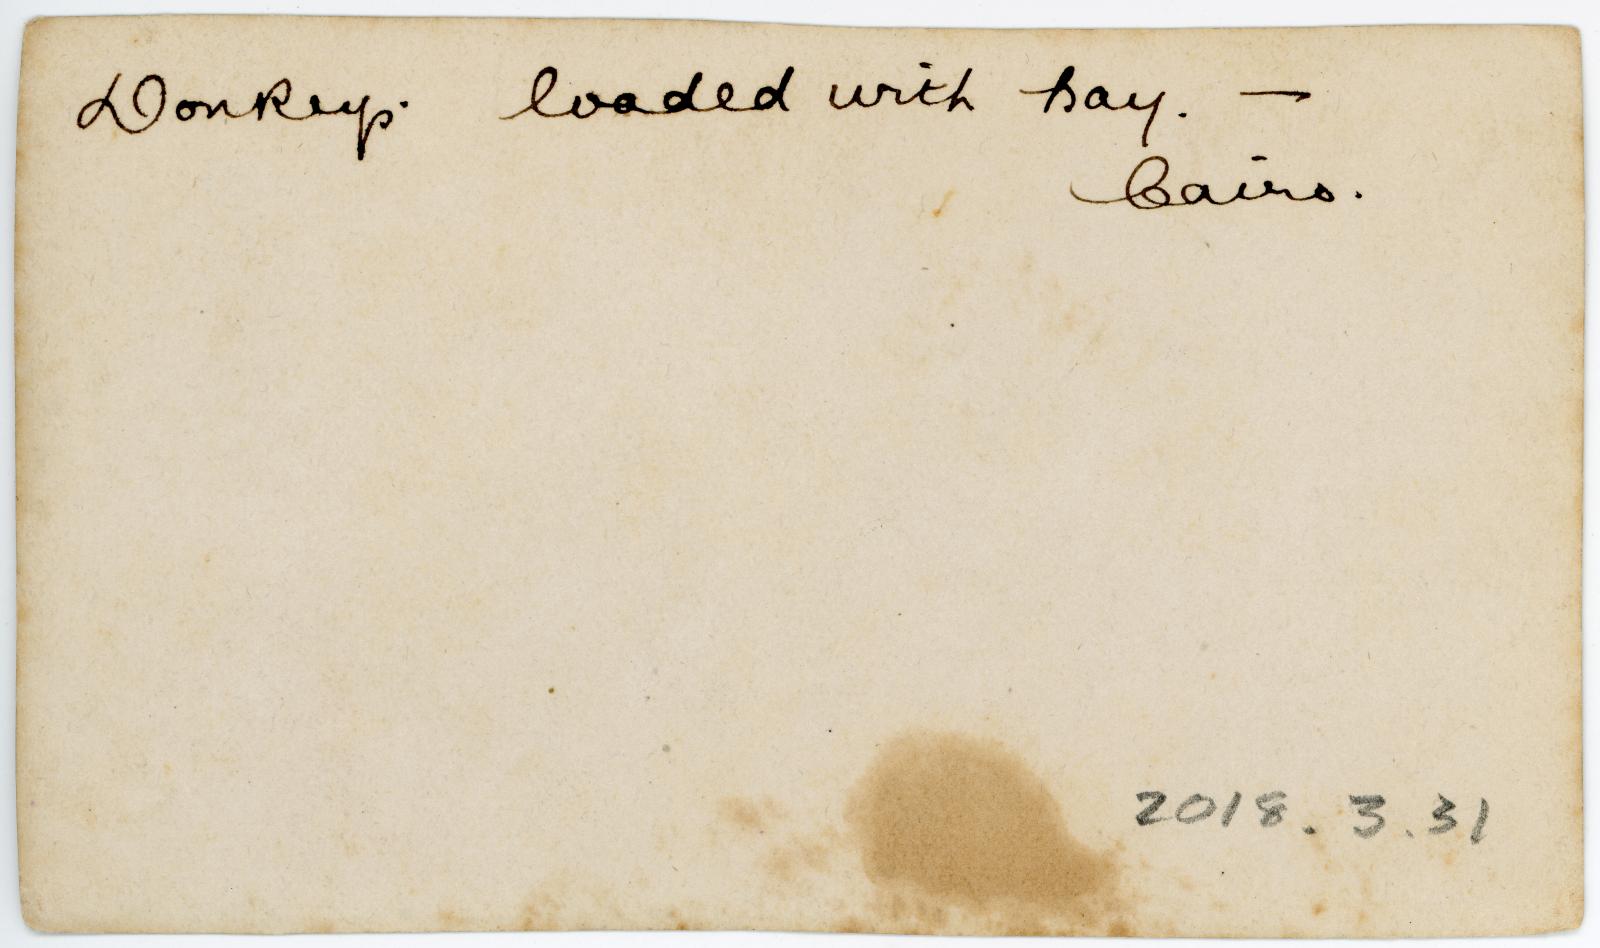 Donkeys loaded with hay. —
Cairo.
2018.3.31